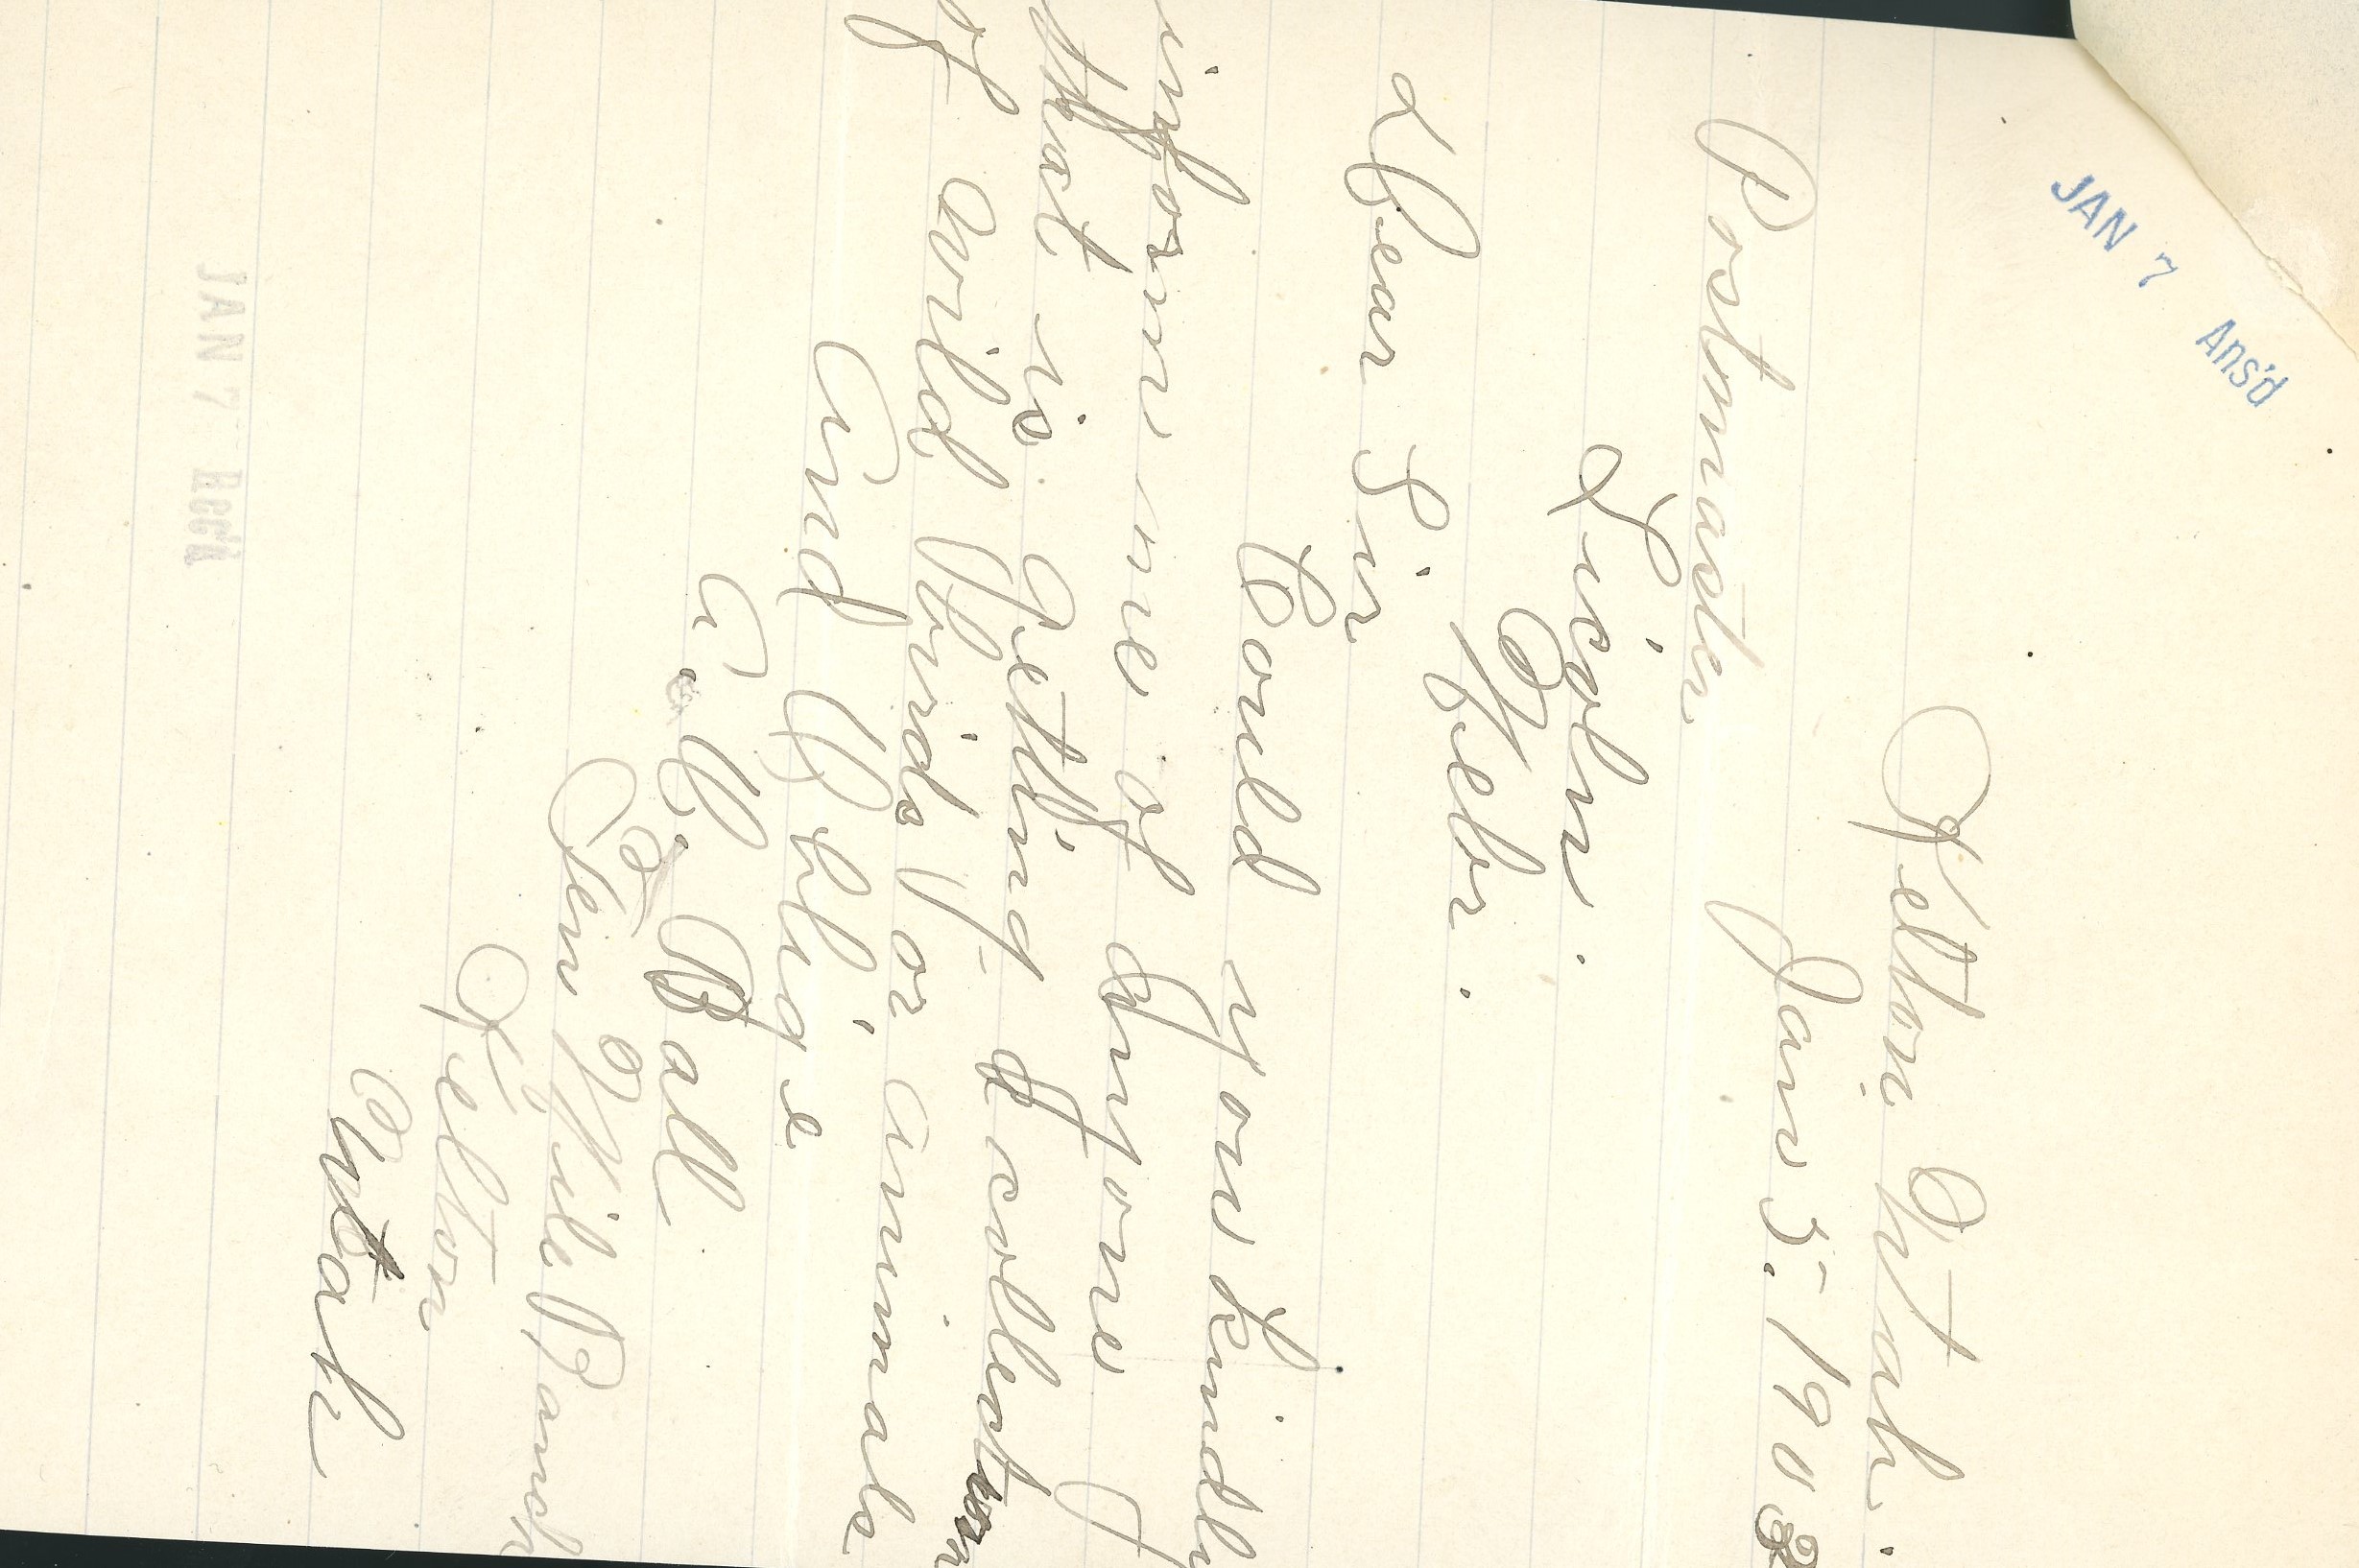 JAN 7 Ans'd
Kelton Utah.
Postmaster Jan 5. 1903
Licoln.
Nebr.
Dear Sir
Could you kindly
inform me of anyone
that is getting a collection
of wild birds, or animals
And Oblige
A. M. Ball
Ten Mile Ranch
Kelton
Utah
JAN 7 Rec'd